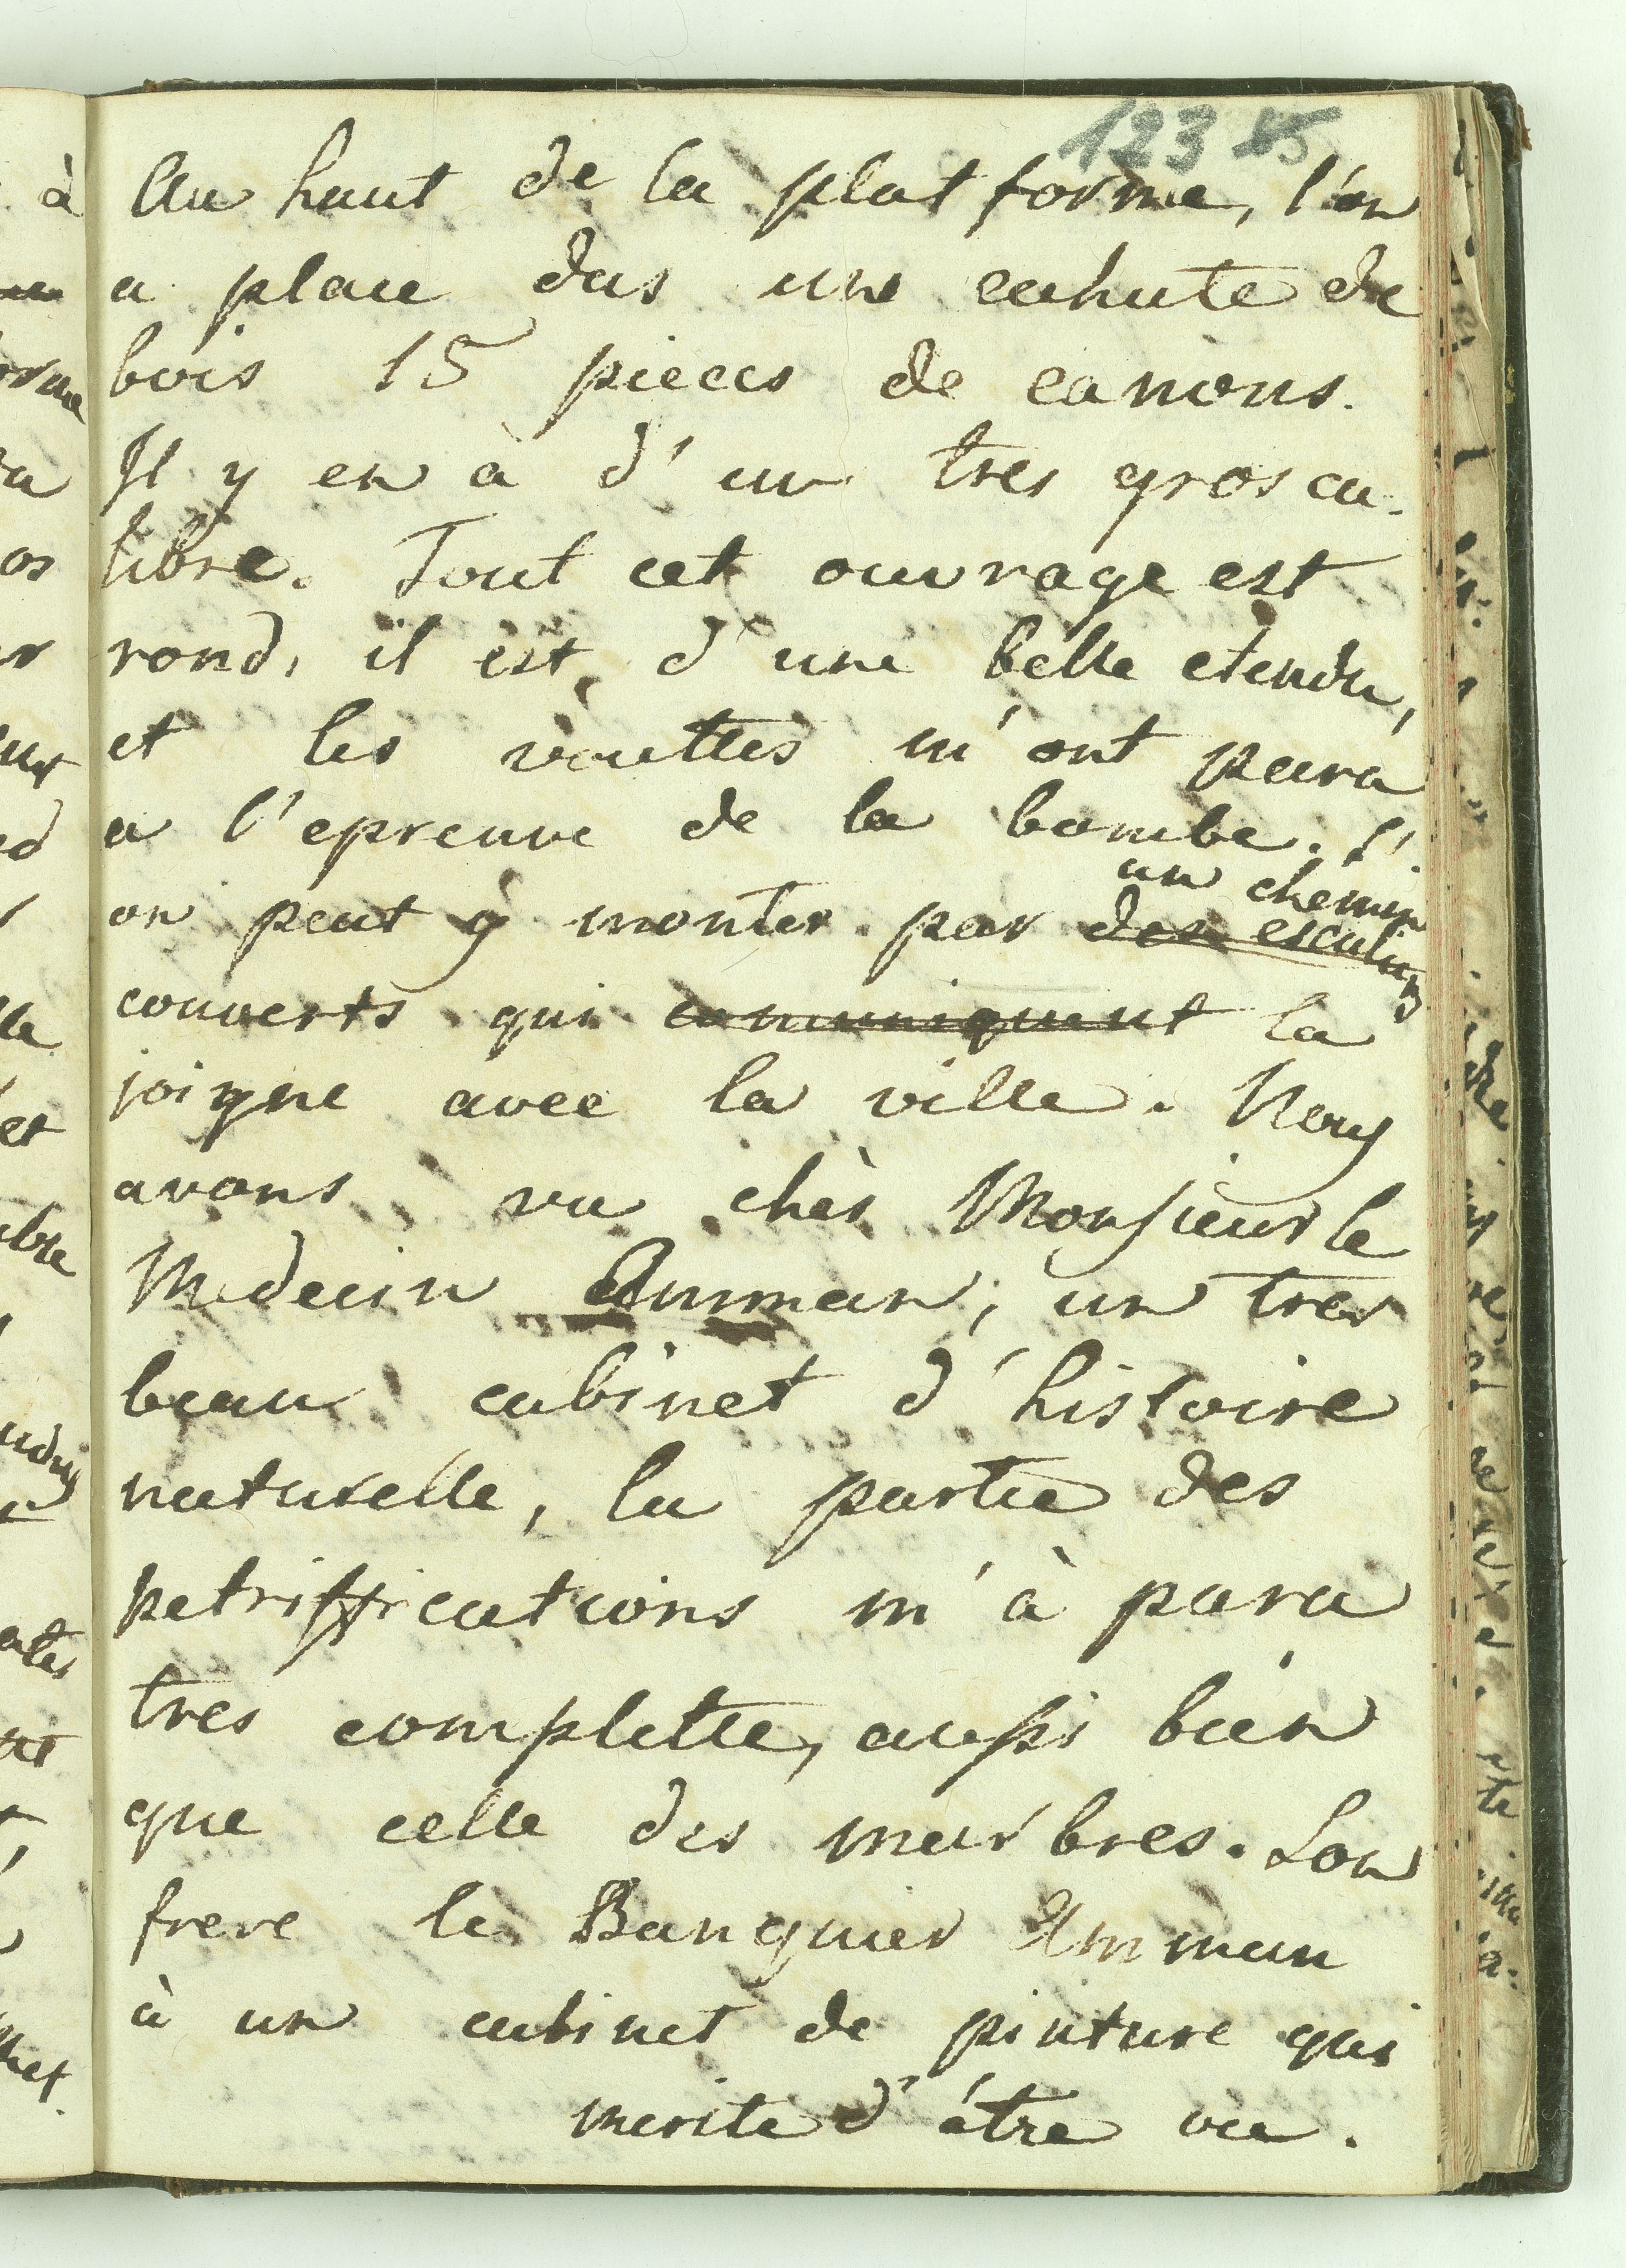 123 85
Au haut de la plat forme, l'on
a place das une cahute de
bois 15 pieces de canons.
Il y en à d'un tres gros ca-
libre. Tout cet ouvrage est
rond, il est d'une belle etendu,
et les vouttes m'ont paru
a l'epreuve de la bombe. L'
un chemin
on peut y monter par des escaliers
couverts qui communiquent la
joigne avec la ville. Nous
avons vu chès Monsieur le
Medecin Amman, un tres
beau cabinet d'histoire
naturelle, la partie des
petriffications m'à paru
tres complette, aussi bien
que celle des marbres. Son
frere le Banquier Amman
à un cabinet de pinture qui
merite d'étre vu.